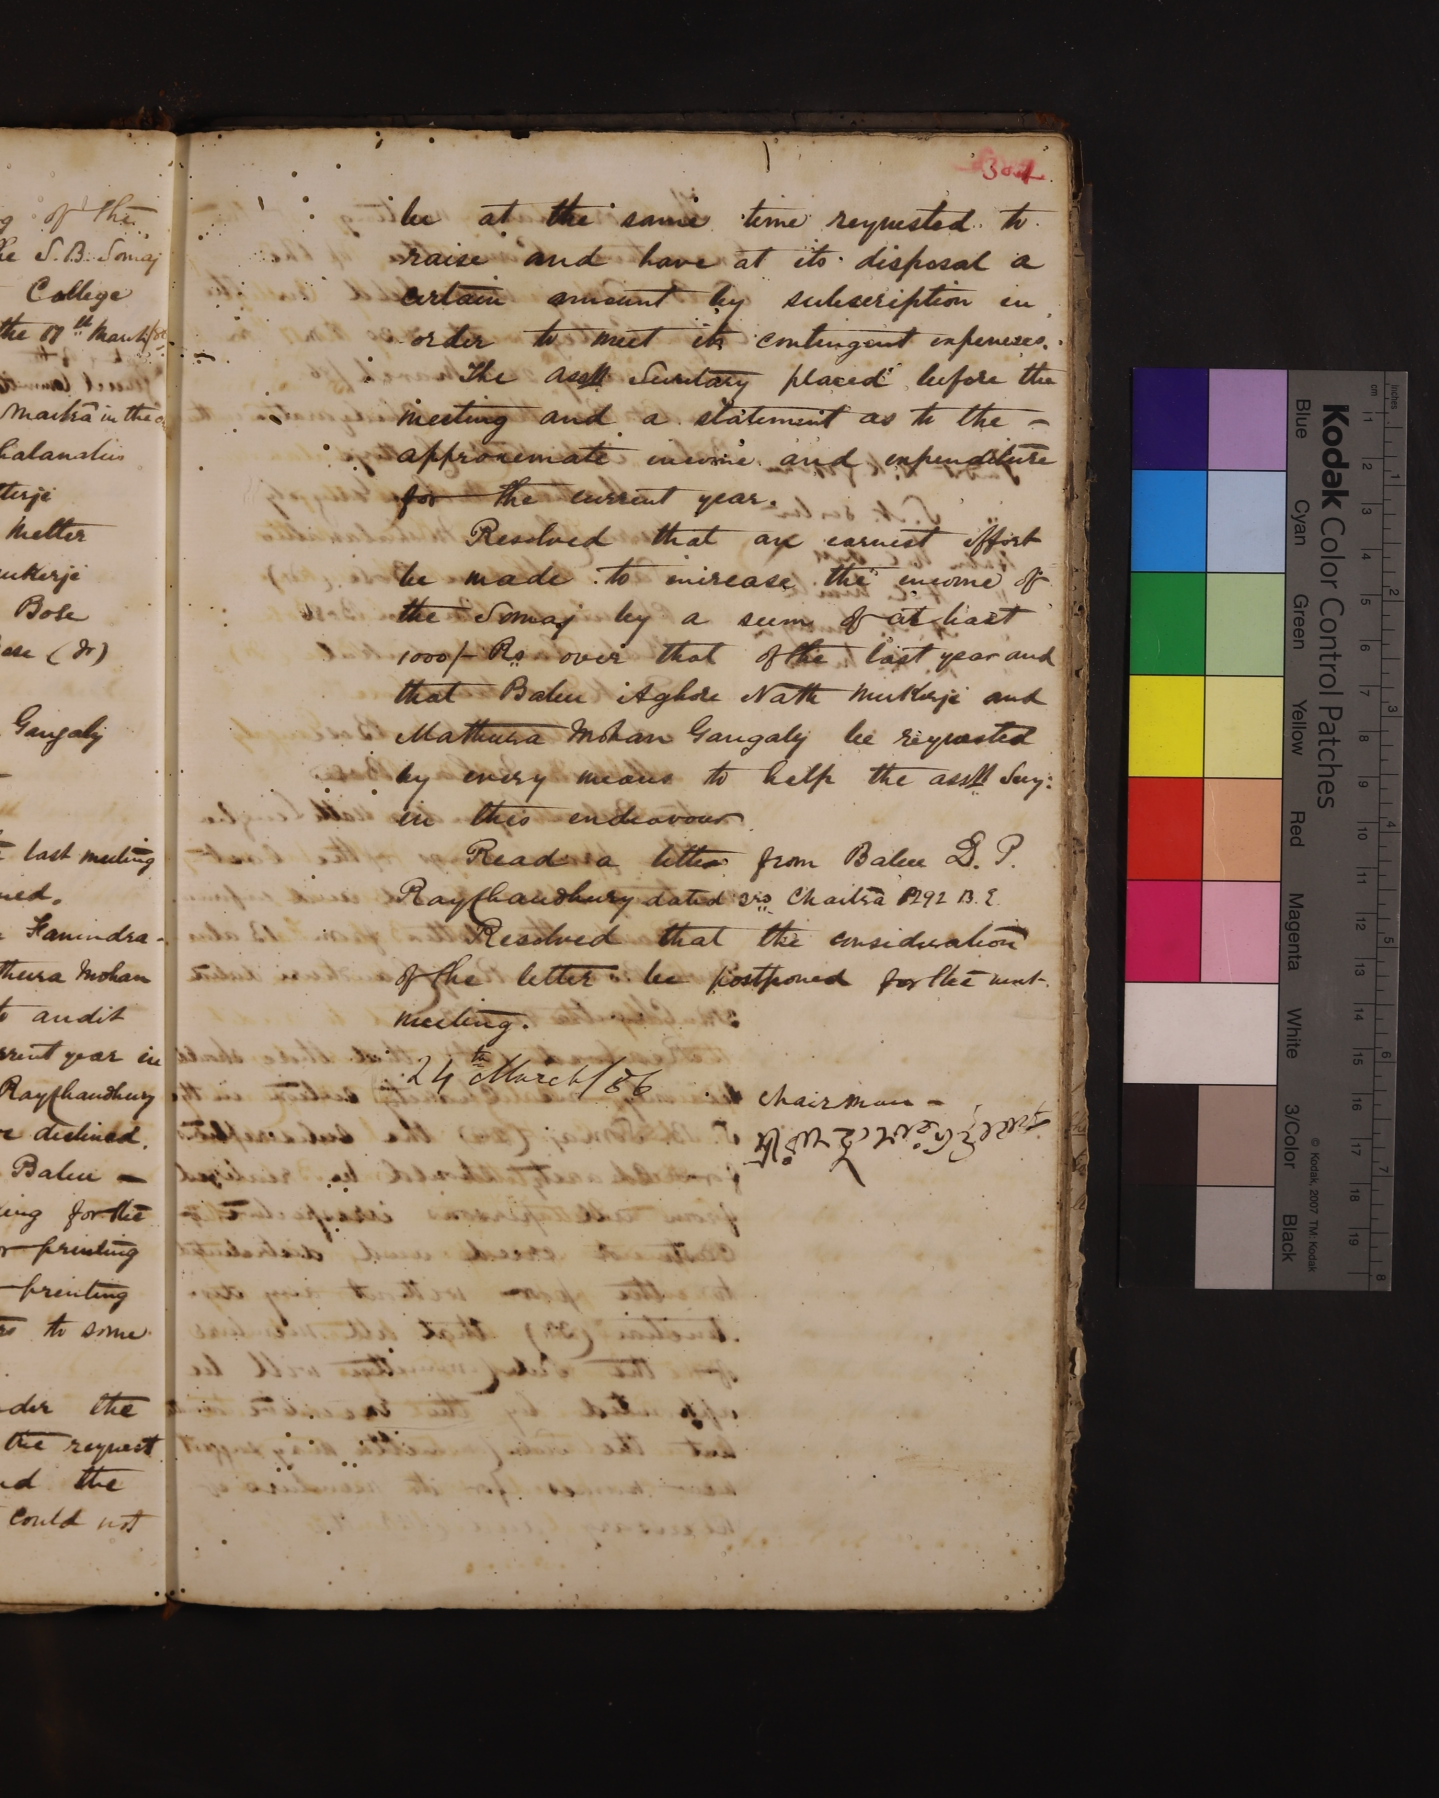 g of the
he S. B. Somaj
College
the 17th March/86
Maitra in the c
halanabis
tterji
Mitter
ukerji
Bose
ose (Dr)
Gangaly
last meeting
med.
Fanindra-
thura Mohan
to audit
rrent year in
RayChaudhury
ve declined.
Babu —
ing for the
or printing
printing
rs to some
der the
the request
nd the
could not
304
be at the same time requested to
raise and have at its disposal a
certain amount by subscription in
order to meet its contingent expenses.
The asstt Secretary placed before the
meeting and a statement as to the -
approximate income and expenditure
for the current year.
Resolved that an earnest effort
be made to increase the income of
the Somaj by a sum of at least
1000/- Rs over that of the last year and
that Babu Aghore Nath Mukerji and
Mathura Mohan Gangaly be requested
by every means to help the asstt Secy:
in this endeavour
Read a letter from Babu D. P.
RayChaudhury dated Chaitra 1292 B. E.
Resolved that the consideration
of the letter be postponed for the next
meeting.
24th March/86
Chairman -
Kodak Color Control Patches
Blue Cyan Green Yellow Red Magenta White 3/Color Black
© Kodak, 2007 TM: Kodak
inches 1 2 3 4 5 6 7 8
cm 1 2 3 4 5 6 7 8 9 10 11 12 13 14 15 16 17 18 19